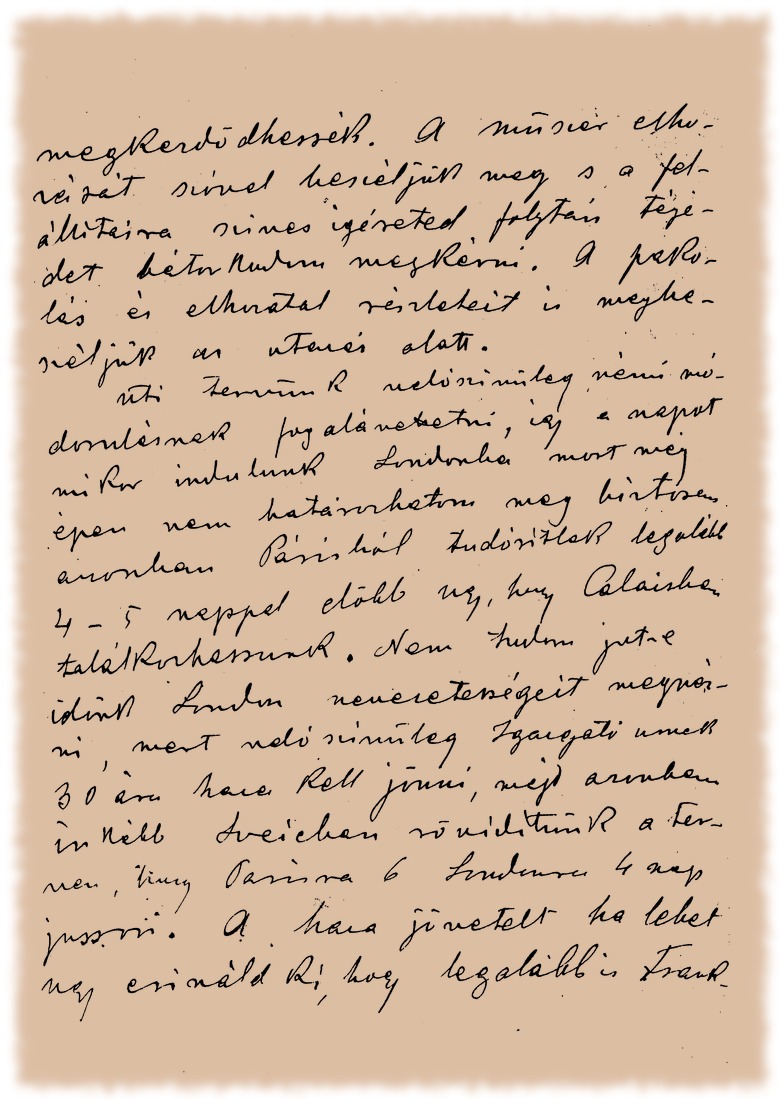 megkezdődhessék. A műszer elho-
zását szóval beszéljük meg s a fel-
állitására szives igéreted folytán Tége-
det bátorkodom megkérni. A pako-
lás és elhozatal részleteit is megbe-
széljük az utazás alatt.
Uti tervünk valószinüleg némi mó-
dosulásnak fog alávettetni, igy a napot
mikor indulunk Londonba most még
épen nem határozhatom meg biztosan
azonban Párisból tudósitlak legalább
4 – 5 nappal előbb ugy, hogy Calaisban
találkozhassunk. Nem tudom jut-e
időnk London nevezetességeit megnéz-
ni, mert valószinüleg Igazgató urnak
30 ára haza kell jönni, majd azonban
inkább Sveicban röviditünk a ter-
ven, hogy Parisra 6 Londonra 4 nap
jusson. A haza jövetelt ha lehet
ugy csináld ki, hogy legalább is Frank-